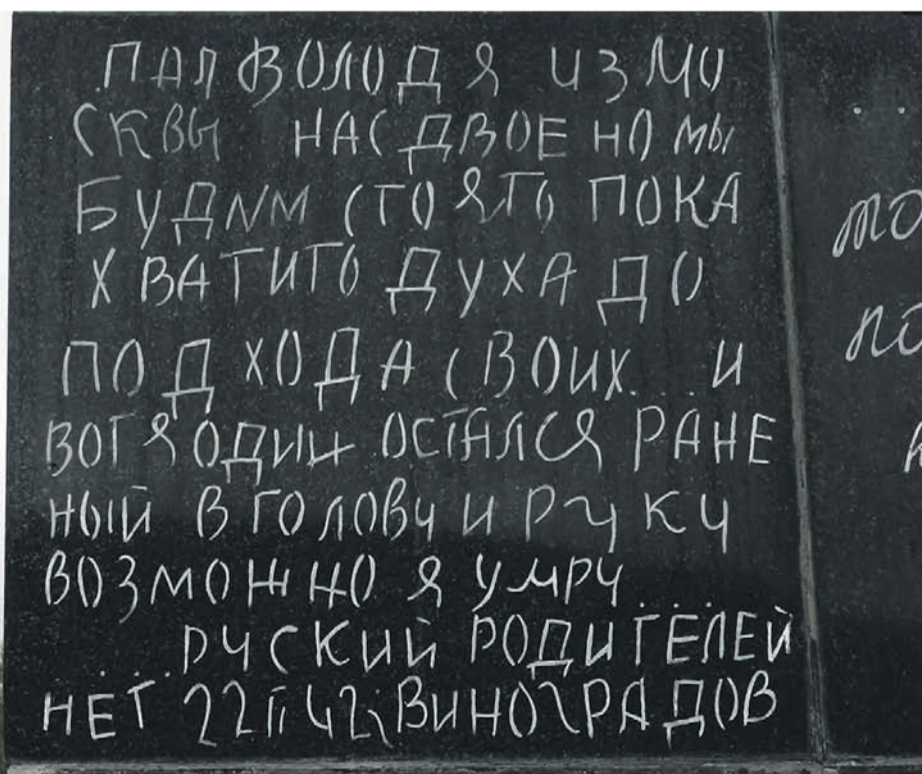 ПАЛ ВОЛОДЯ ИЗ МО
СКВЫ НАС ДВОЕ НО МЫ
БУДИМ СТОЯТЬ ПОКА
ХВАТИТЬ ДУХА ДО
ПОДХОДА СВОИХ... И
ВОТ Я ОДИН ОСТАЛСЯ РАНЕ
НЫЙ В ГОЛОВУ И РУКУ
ВОЗМОЖНО Я УМРУ
... РУСКИЙ РОДИТЕЛЕЙ
НЕТ ВИНОГРАДОВ